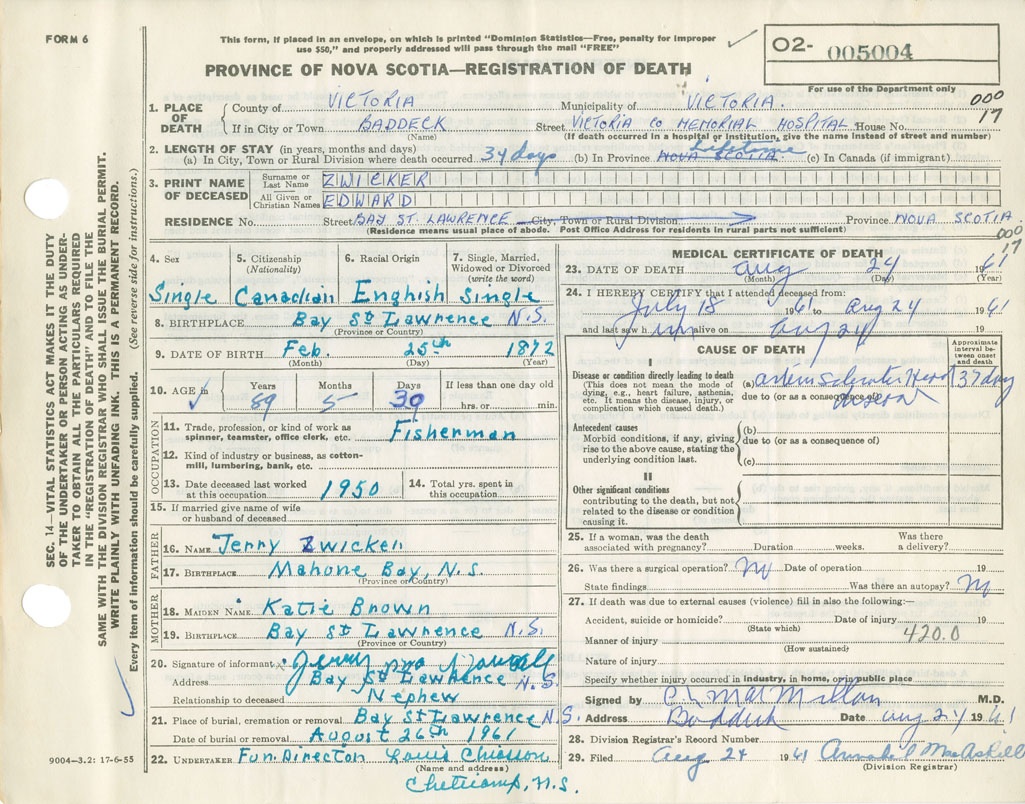 FORM 6
This form, if placed in an envelope, on which is printed "Dominion Statistics—Free, penalty for improper
use $50," and properly addressed will pass through the mail "FREE"
O2- 005004
PROVINCE OF NOVA SCOTIA—REGISTRATION OF DEATH
For use of the Department only
000
17
1. PLACE OF DEATH { County of VICTORIA Municipality of VICTORIA.
If in City or Town BADDECK (Name) Street VICTORIA CO MEMORIAL HOSPITAL House No.
(If death occurred in a hospital or institution, give the name instead of street and number)
2. LENGTH OF STAY (in years, months and days)
(a) In City, Town or Rural Division where death occurred 34 days (b) In Province NOVA SCOTIA. Lifetime (c) In Canada (if immigrant)
3. PRINT NAME OF DECEASED { Surname or Last Name ZWICKER
All Given or Christian Names EDWARD
RESIDENCE No. Street BAY ST. LAWRENCE City, Town or Rural Division Province NOVA SCOTIA
(Residence means usual place of abode. Post Office Address for residents in rural parts not sufficient)
000
17
SEC. 14—VITAL STATISTICS ACT MAKES IT THE DUTY
OF THE UNDERTAKER OR PERSON ACTING AS UNDER-
TAKER TO OBTAIN ALL THE PARTICULARS REQUIRED
IN THE "REGISTRATION OF DEATH" AND TO FILE THE
SAME WITH THE DIVISION REGISTRAR WHO SHALL ISSUE THE BURIAL PERMIT.
WRITE PLAINLY WITH UNFADING INK. THIS IS A PERMANENT RECORD.
Every item of information should be carefully supplied. (See reverse side for instructions.)
4. Sex
Single
5. Citizenship
(Nationality)
Canadian
6. Racial Origin
Enghish
7. Single, Married,
Widowed or Divorced
(write the word)
Single
8. BIRTHPLACE Bay St Lawrence N.S.
(Province or Country)
9. DATE OF BIRTH Feb. 25th 1872
(Month) (Day) (Year)
10. AGE Years Months Days If less than one day old
89 5 30 hrs. or min.
OCCUPATION
11. Trade, profession, or kind of work as
spinner, teamster, office clerk, etc. Fisherman
12. Kind of industry or business, as cotton-
mill, lumbering, bank, etc.
13. Date deceased last worked
at this occupation 1950
14. Total yrs. spent in
this occupation
15. If married give name of wife
or husband of deceased
FATHER
16. NAME Jerry Zwicker
17. BIRTHPLACE Mahone Bay, N.S.
(Province or Country)
MOTHER
18. MAIDEN NAME Katie Brown
19. BIRTHPLACE Bay St Lawrence N.S.
(Province or Country)
20. Signature of informant Jerry
Address Bay St Lawrence N.S.
Relationship to deceased Nephew
21. Place of burial, cremation or removal Bay St Lawrence N.S.
Date of burial or removal August 26th 1961
22. UNDERTAKER Fun. Director Louis Chiasson
(Name and address)
Cheticamp, N.S.
9004—3.2: 17-6-55
MEDICAL CERTIFICATE OF DEATH
23. DATE OF DEATH Aug 24 1961
(Month) (Day) (Year)
24. I HEREBY CERTIFY that I attended deceased from:
July 18 1961 to Aug 24 1961
and last saw him alive on Aug 24 19
CAUSE OF DEATH
Approximate
interval be-
tween onset
and death
I
Disease or condition directly leading to death
(This does not mean the mode of
dying, e.g., heart failure, asthenia,
etc. It means the disease, injury, or
complication which caused death.)
(a) 37 day
due to (or as a consequence of)
Antecedent causes
Morbid conditions, if any, giving
rise to the above cause, stating the
underlying condition last.
(b)
due to (or as a consequence of)
(c)
II
Other significant conditions
contributing to the death, but not
related to the disease or condition
causing it.
25. If a woman, was the death
associated with pregnancy? Duration weeks. Was there
a delivery?
26. Was there a surgical operation? No Date of operation 19
State findings Was there an autopsy? No
27. If death was due to external causes (violence) fill in also the following:—
Accident, suicide or homicide? Date of injury 19
(State which)
420.0
Manner of injury
(How sustained)
Nature of injury
Specify whether injury occurred in industry, in home, or in public place
Signed by C L MacMillan M.D.
Address Baddeck Date Aug 24 1961
28. Division Registrar's Record Number
29. Filed Aug 24 1961 MacAskill
(Division Registrar)